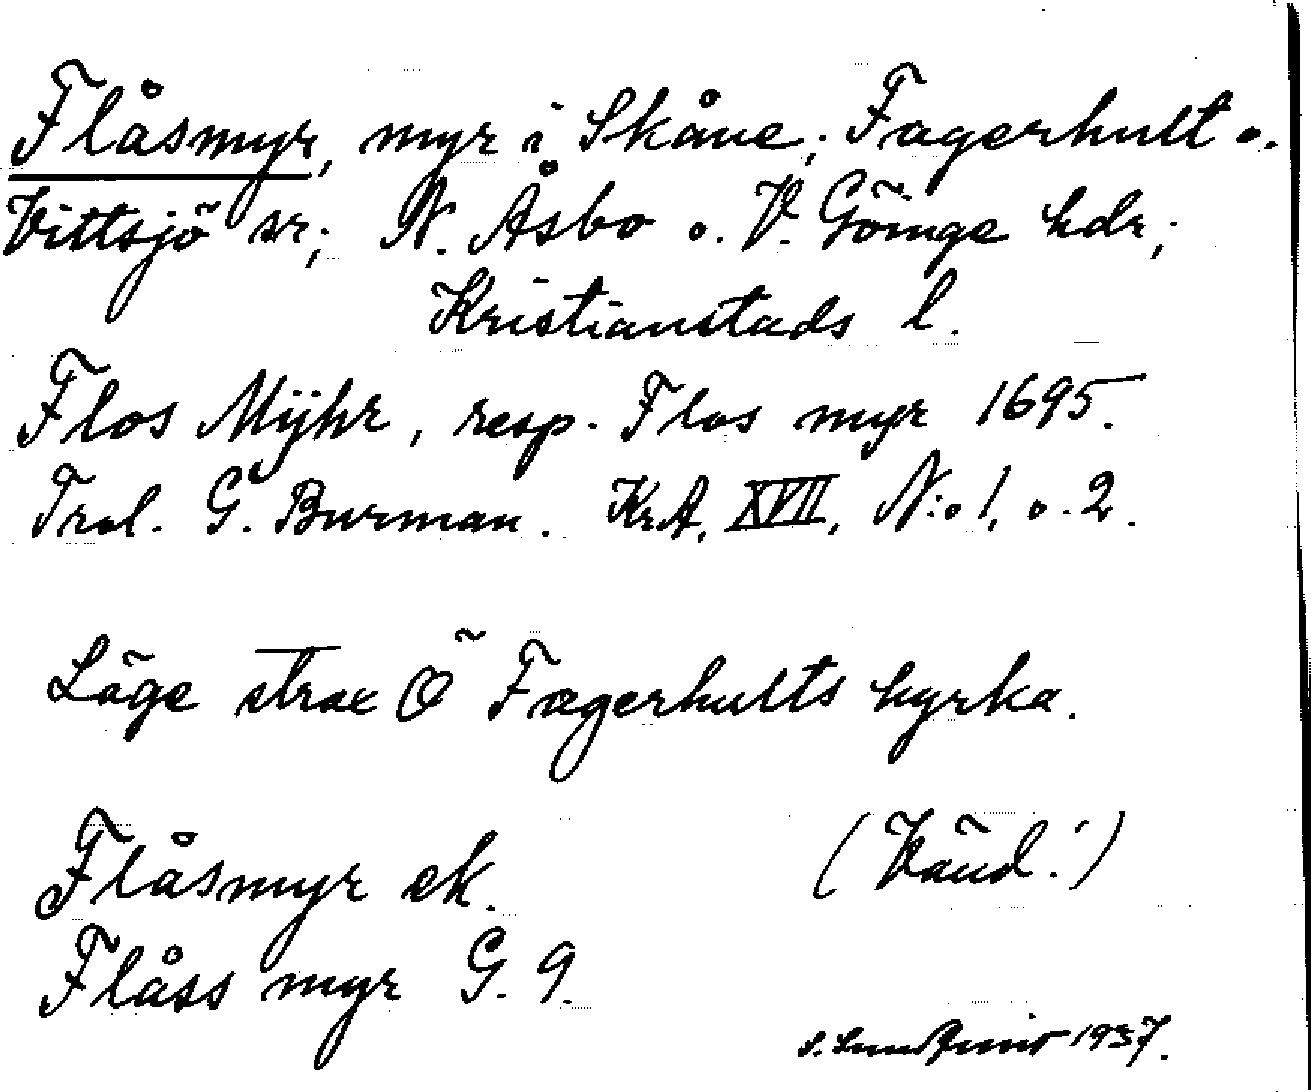 Flåsmyr, myr i Skåne; Fagerhult o.
Vittsjö snr; N. Åsbo o. V. Göinge hdr;
Kristianstads l.
Flos Mÿhr, resp. Flos myr 1695.
Trol. G. Burman. KrA, XVII, N:o 1, o. 2.
Läge strax Ö Fagerhults kyrka.
Flåsmyr ek. (Vänd!)
Flåss myr G. 9.
1937.